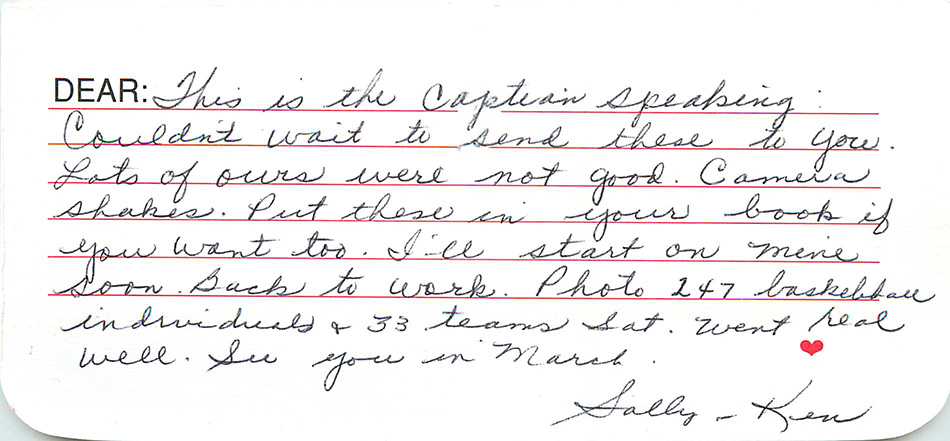 DEAR: This is the Captian speaking :
Couldn't wait to send these to you.
Lots of ours were not good. Camera
shakes. Put these in your book if
you want too. I'll start on mine
soon. Back to work. Photo 247 basketball
individuals & 33 teams Sat. Went real
well. See you in March.
Sally - Ken